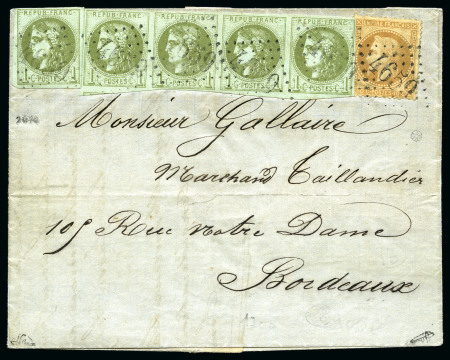 REPUB·FRANC· REPUB·FRANC· REPUB·FRANC· REPUB·FRANC· REPUB·FRANC·
1 C·POSTES·1 1 C·POSTES·1 1 C·POSTES·1 1 C·POSTES·1 1 C·POSTES·1
4659
Monsieur Gallaire
Marchand Taillandier
105 Rue Notre Dame
Bordeaux